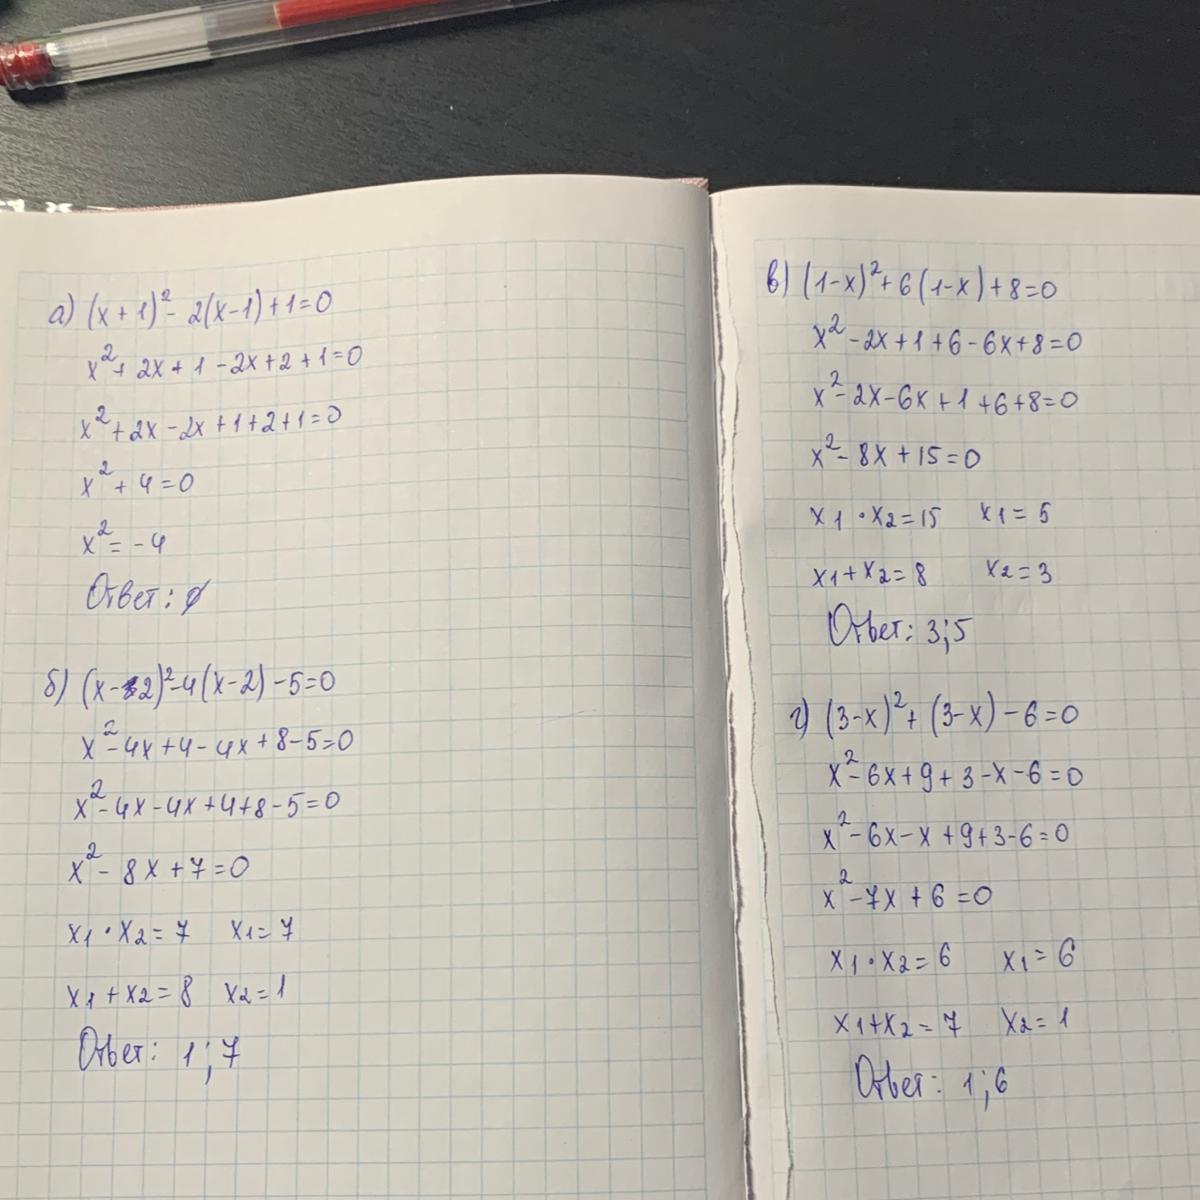 а) (x+1)²- 2(x-1)+1=0
x²+ 2x+1-2x+2+1=0
x²+2x-2x+1+2+1=0
x²+4=0
x²=-4
Ответ: ∅
б) (x-2)²-4(x-2)-5=0
x²-4x+4-4x+8-5=0
x²-4x-4x+4+8-5=0
x²-8x+7=0
x1·x2=7 x1=7
x1+x2=8 x2=1
Ответ: 1;7
в) (1-x)²+6(1-x)+8=0
x²-2x+1+6-6x+8=0
x²-2x-6x+1+6+8=0
x²-8x+15=0
x1·x2=15 x1=5
x1+x2=8 x2=3
Ответ: 3;5
г) (3-x)²+(3-x)-6=0
x²-6x+9+3-x-6=0
x²-6x-x+9+3-6=0
x²-7x+6=0
x1·x2=6 x1=6
x1+x2=7 x2=1
Ответ: 1;6